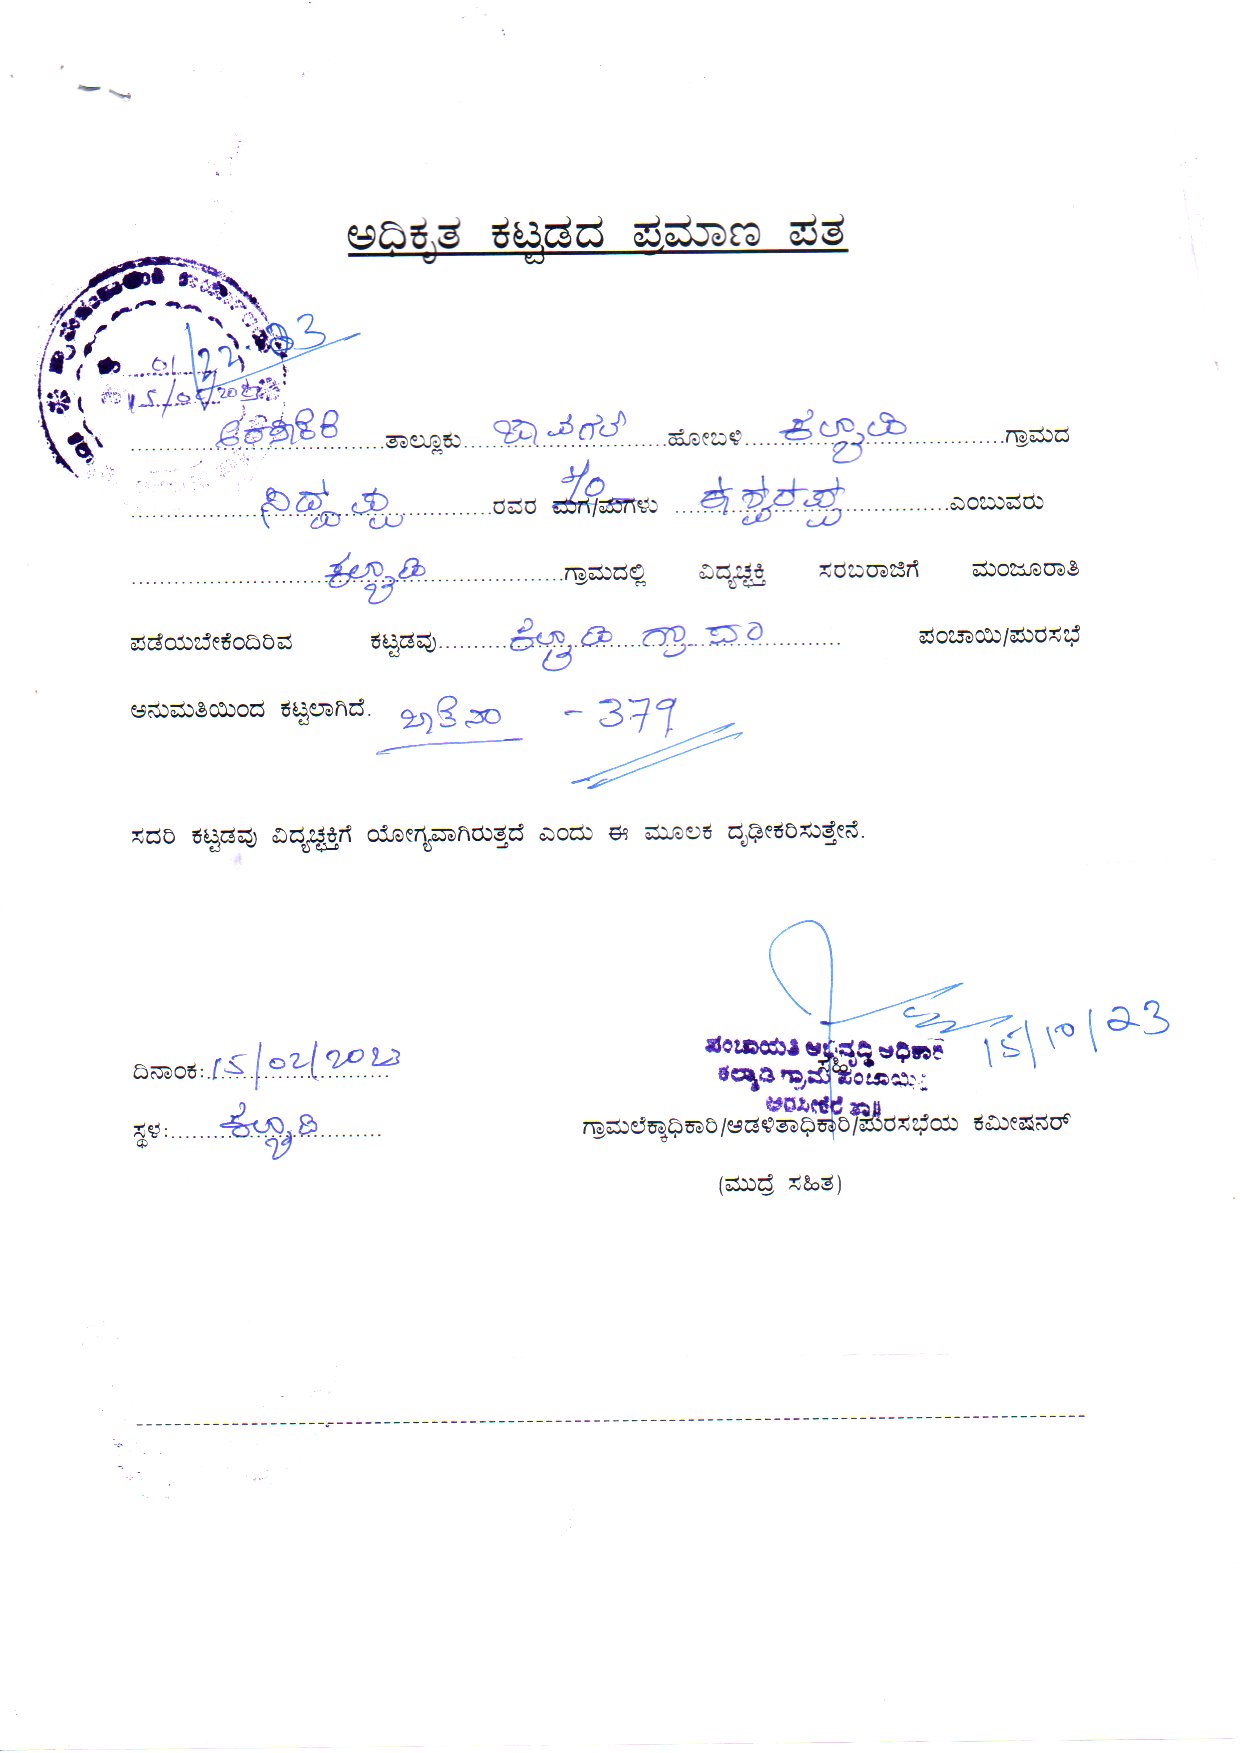 ಅಧಿಕೃತ ಕಟ್ಟಡದ ಪ್ರಮಾಣ ಪತ
01/22-23
15/02/2023
ಅರಸೀಕೆರೆ ತಾಲ್ಲೂಕು ಜಾವಗಲ್ ಹೋಬಳಿ ಕಲ್ಯಾಡಿ ಗ್ರಾಮದ
ರವರ ಮಗ/ಮಗಳು ಈಶ್ವರಪ್ಪ ಎಂಬುವರು
ಕಲ್ಯಾಡಿ ಗ್ರಾಮದಲ್ಲಿ ವಿದ್ಯಚ್ಛಕ್ತಿ ಸರಬರಾಜಿಗೆ ಮಂಜೂರಾತಿ
ಪಡೆಯಬೇಕೆಂದಿರಿವ ಕಟ್ಟಡವು ಕಲ್ಯಾಡಿ ಗ್ರಾ ಪಂ ಪಂಚಾಯಿ/ಪುರಸಭೆ
ಅನುಮತಿಯಿಂದ ಕಟ್ಟಲಾಗಿದೆ. - 379
ಸದರಿ ಕಟ್ಟಡವು ವಿದ್ಯಚ್ಛಕ್ತಿಗೆ ಯೋಗ್ಯವಾಗಿರುತ್ತದೆ ಎಂದು ಈ ಮೂಲಕ ದೃಢೀಕರಿಸುತ್ತೇನೆ.
15/10/23
ಪಂಚಾಯತಿ ಅಭಿವೃದ್ಧಿ ಅಧಿಕಾರಿ
ಸಹಿ
ದಿನಾಂಕ: 15/02/2023
ಕಲ್ಯಾಡಿ ಗ್ರಾಮ ಪಂಚಾಯಿತಿ
ಅರಸೀಕೆರೆ ತಾ||
ಸ್ಥಳ: ಕಲ್ಯಾಡಿ
ಗ್ರಾಮಲೆಕ್ಕಾಧಿಕಾರಿ/ಆಡಳಿತಾಧಿಕಾರಿ/ಪುರಸಭೆಯ ಕಮೀಷನರ್
(ಮುದ್ರೆ ಸಹಿತ)